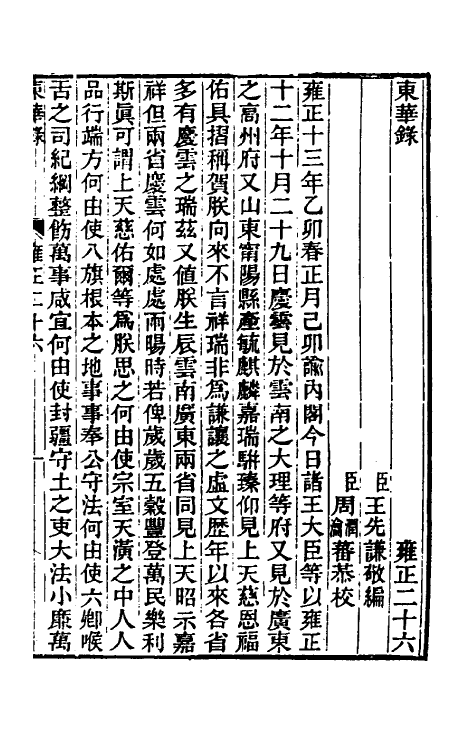 東華錄　雍正二十六
臣王先謙敬編
臣周潤蕃
周瀹蕃恭校
雍正十三年乙卯春正月己卯諭內閣今日諸王大臣等以雍正
十二年十月二十九日慶雲見於雲南之大理等府又見於廣東
之高州府又山東甯陽縣產毓麒麟嘉瑞駢臻仰見上天慈恩福
佑具摺稱賀朕向來不言祥瑞非為謙讓之虛文歷年以來各省
多有慶雲之瑞茲又值朕生辰雲南廣東兩省同見上天昭示嘉
祥但兩省慶雲何如處處雨暘時若俾歲歲五穀豐登萬民樂利
斯眞可謂上天慈佑爾等為朕思之何由使宗室天潢之中人人
品行端方何由使八旗根本之地事事奉公守法何由使六鄉喉
舌之司紀綱整飭萬事咸宜何由使封疆守土之吏大法小廉萬
東華錄　雍正二十六　一